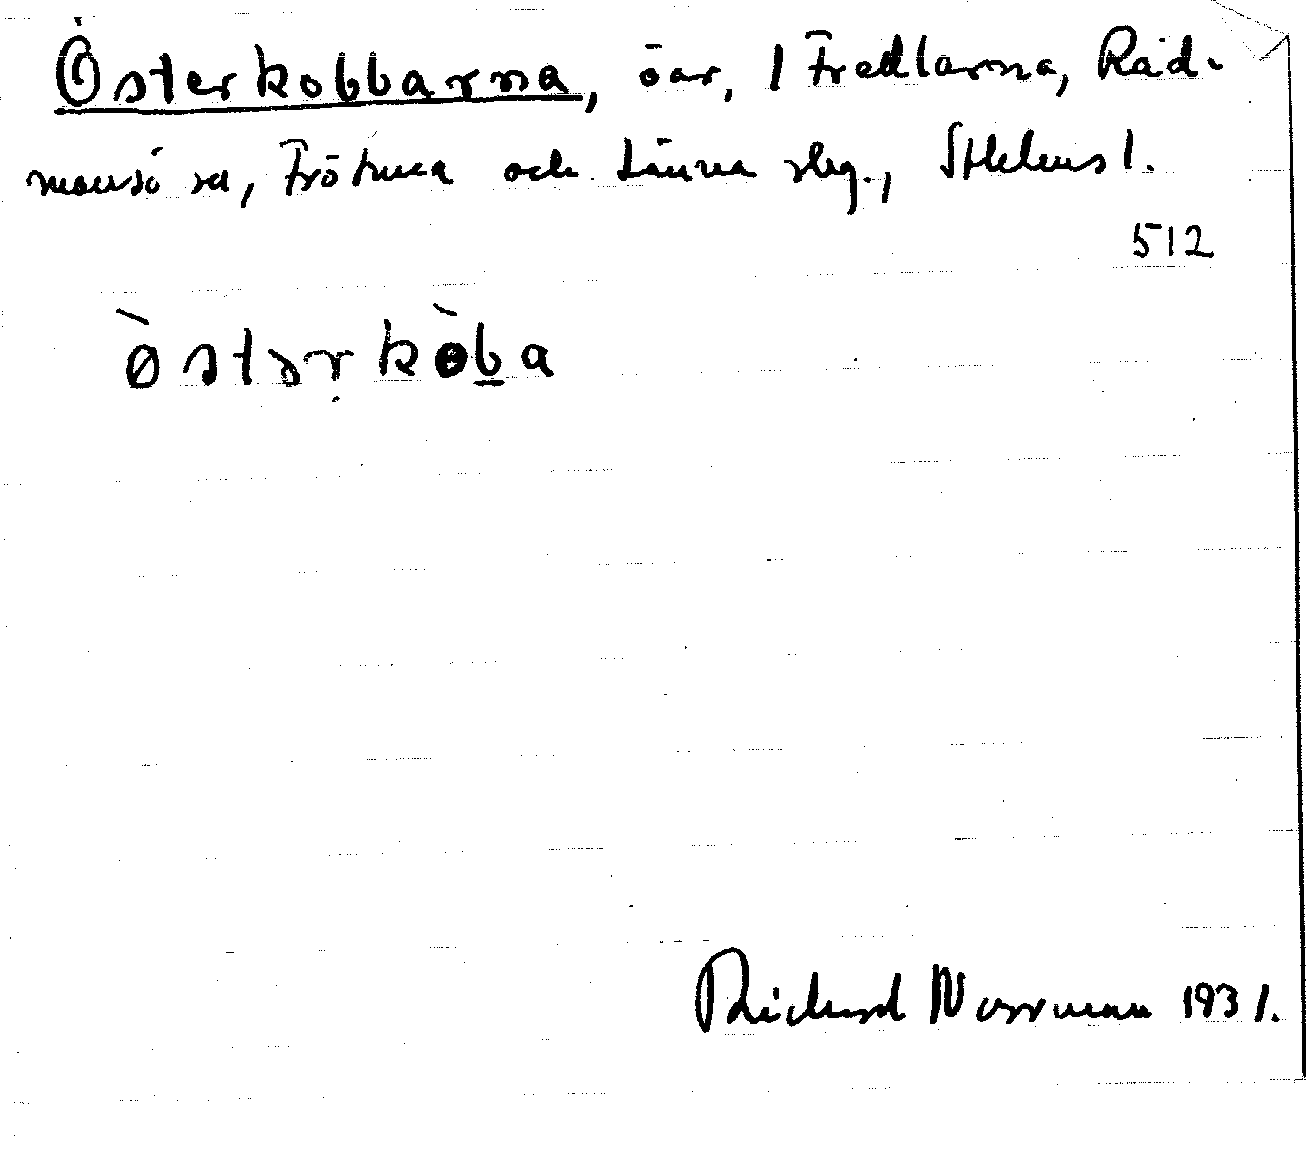 Österkobbarna, öar, I Fredlarna, Råd-
mansö sn, Frötuna och Länna skg., Sthlms l.
512
ö̀stərkòb̲a
Richard Norrman 1931.